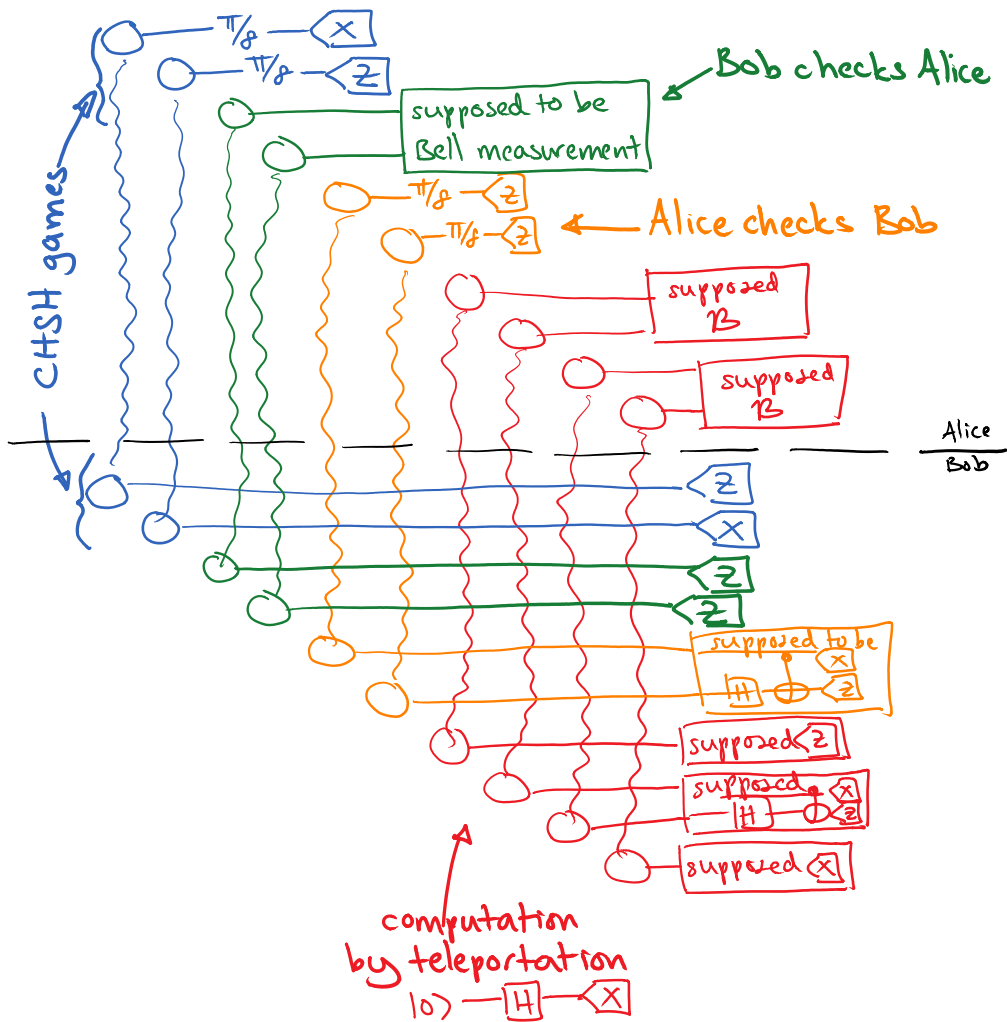 π/8 X
π/8 Z
Bob checks Alice
supposed to be
Bell measurement
CHSH games
π/8 Z
π/8 Z
Alice checks Bob
supposed
B
supposed
B
Alice
Bob
Z
X
Z
Z
supposed to be
X
H Z
supposed Z
supposed X
H Z
supposed X
computation
by teleportation
|0⟩ H X